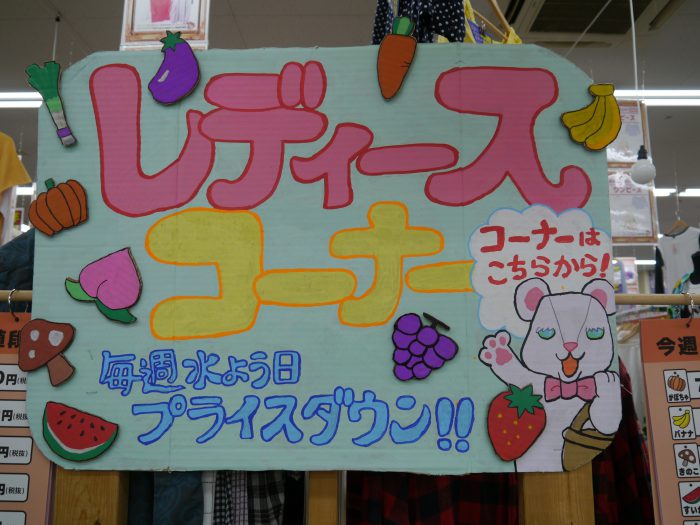 レディース
コーナー
コーナーは
こちらから!
毎週水よう日
プライスダウン!!
今週
かぼちゃ
バナナ
きのこ